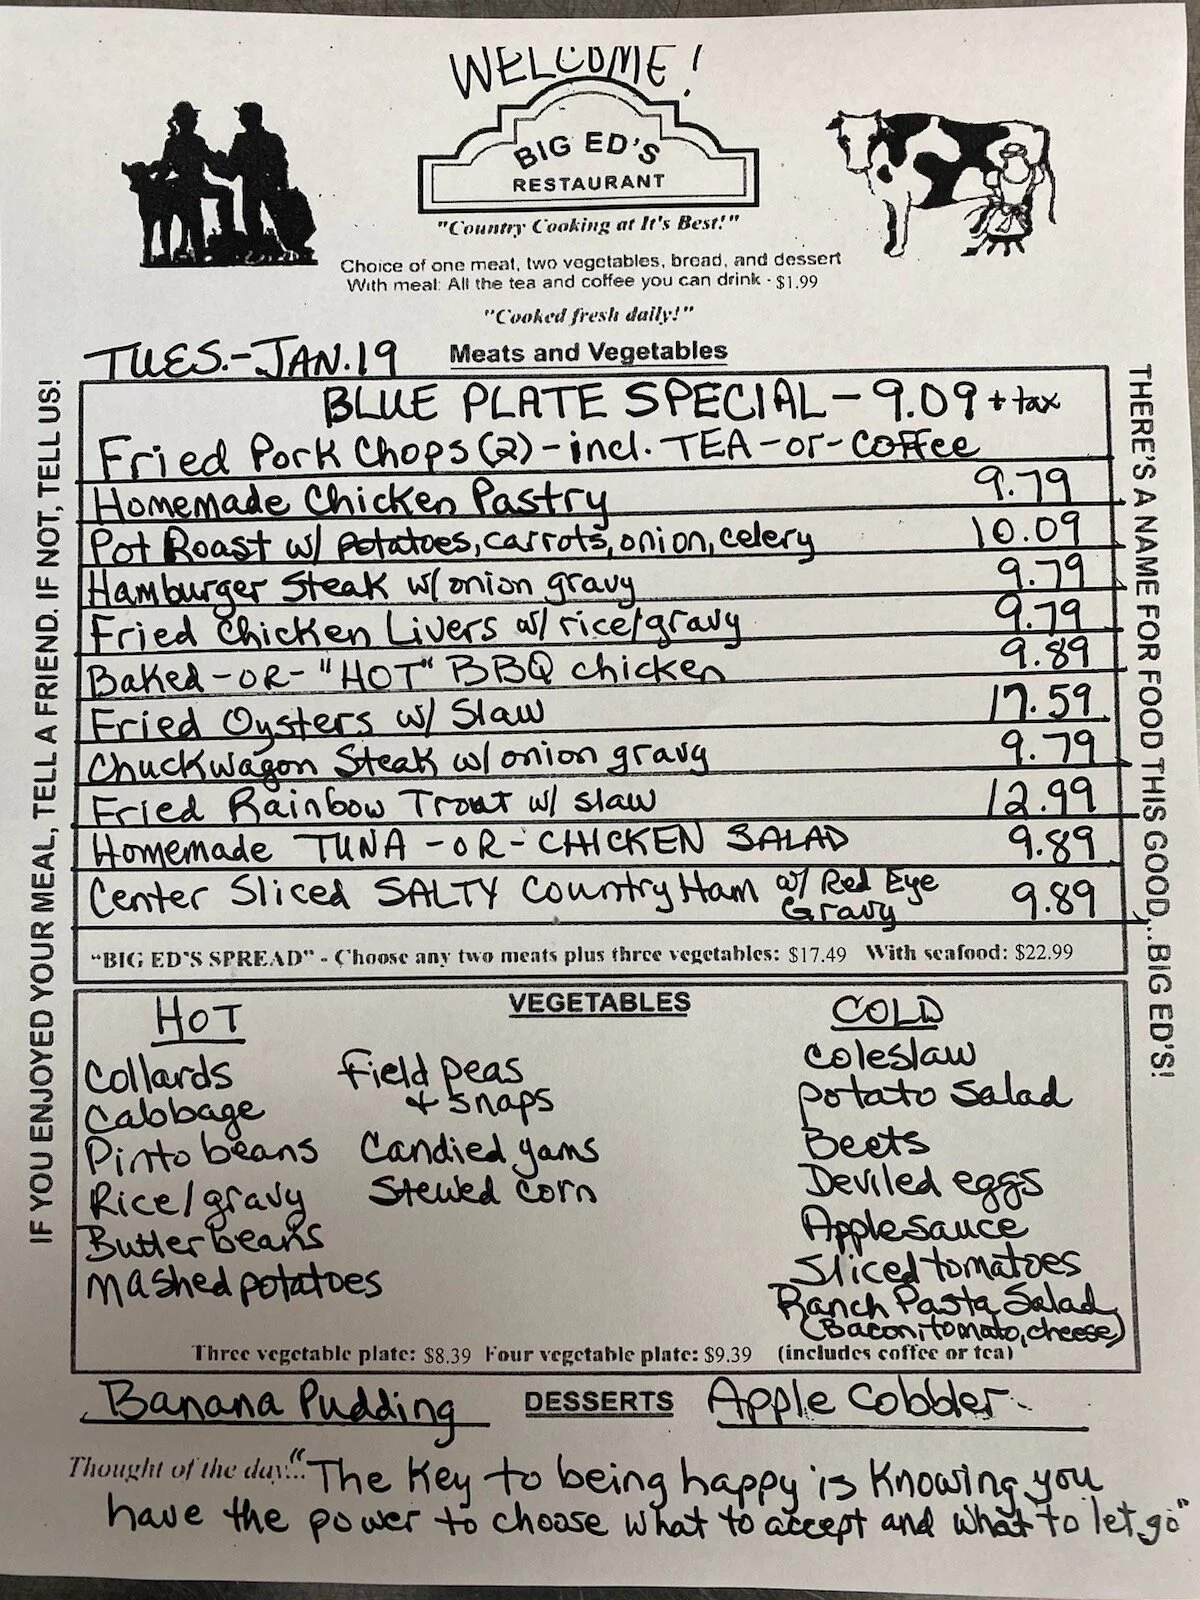 WELCOME!
BIG ED'S
RESTAURANT
"Country Cooking at It's Best!"
Choice of one meat, two vegetables, bread, and dessert
With meal: All the tea and coffee you can drink - $1.99
"Cooked fresh daily!"
TUES.-JAN.19 Meats and Vegetables
IF YOU ENJOYED YOUR MEAL, TELL A FRIEND. IF NOT, TELL US!
BLUE PLATE SPECIAL - 9.09 + tax
Fried Pork Chops (2) - incl. TEA -or- COFFEE
Homemade Chicken Pastry 9.79
Pot Roast w/ potatoes, carrots, onion, celery 10.09
Hamburger Steak w/ onion gravy 9.79
Fried Chicken Livers w/ rice/gravy 9.79
Baked -OR- "HOT" BBQ chicken 9.89
Fried Oysters w/ Slaw 17.59
Chuckwagon Steak w/ onion gravy 9.79
Fried Rainbow Trout w/ slaw 12.99
Homemade TUNA -OR- CHICKEN SALAD 9.89
Center Sliced SALTY Country Ham w/ Red Eye Gravy 9.89
"BIG ED'S SPREAD" - Choose any two meats plus three vegetables: $17.49 With seafood: $22.99
THERE'S A NAME FOR FOOD THIS GOOD...BIG ED'S!
VEGETABLES
HOT
Collards
Cabbage
Pinto beans
Rice/gravy
Butterbeans
Mashed potatoes
Field peas
+ snaps
Candied yams
Stewed corn
COLD
Coleslaw
Potato Salad
Beets
Deviled eggs
Applesauce
Sliced tomatoes
Ranch Pasta Salad
(Bacon, tomato, cheese)
Three vegetable plate: $8.39 Four vegetable plate: $9.39 (includes coffee or tea)
Banana Pudding DESSERTS Apple Cobbler
Thought of the day... "The Key to being happy is Knowing you
have the power to choose what to accept and what to let go"